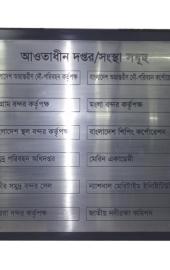 আওতাধীন দপ্তর/সংস্থা সমূহ
অভ্যন্তরীণ নৌ-পরিবহন কর্তৃপক্ষ
বাংলাদেশ অভ্যন্তরীণ নৌ-পরিবহন কর্পোরেশন
বন্দর কর্তৃপক্ষ
মংলা বন্দর কর্তৃপক্ষ
স্থল বন্দর কর্তৃপক্ষ
বাংলাদেশ শিপিং কর্পোরেশন
পরিবহন অধিদপ্তর
মেরিন একাডেমী
সমুদ্র বন্দর সেল
ন্যাশনাল মেরিটাইম ইনস্টিটিউট
বন্দর কর্তৃপক্ষ
জাতীয় নদীরক্ষা কমিশন